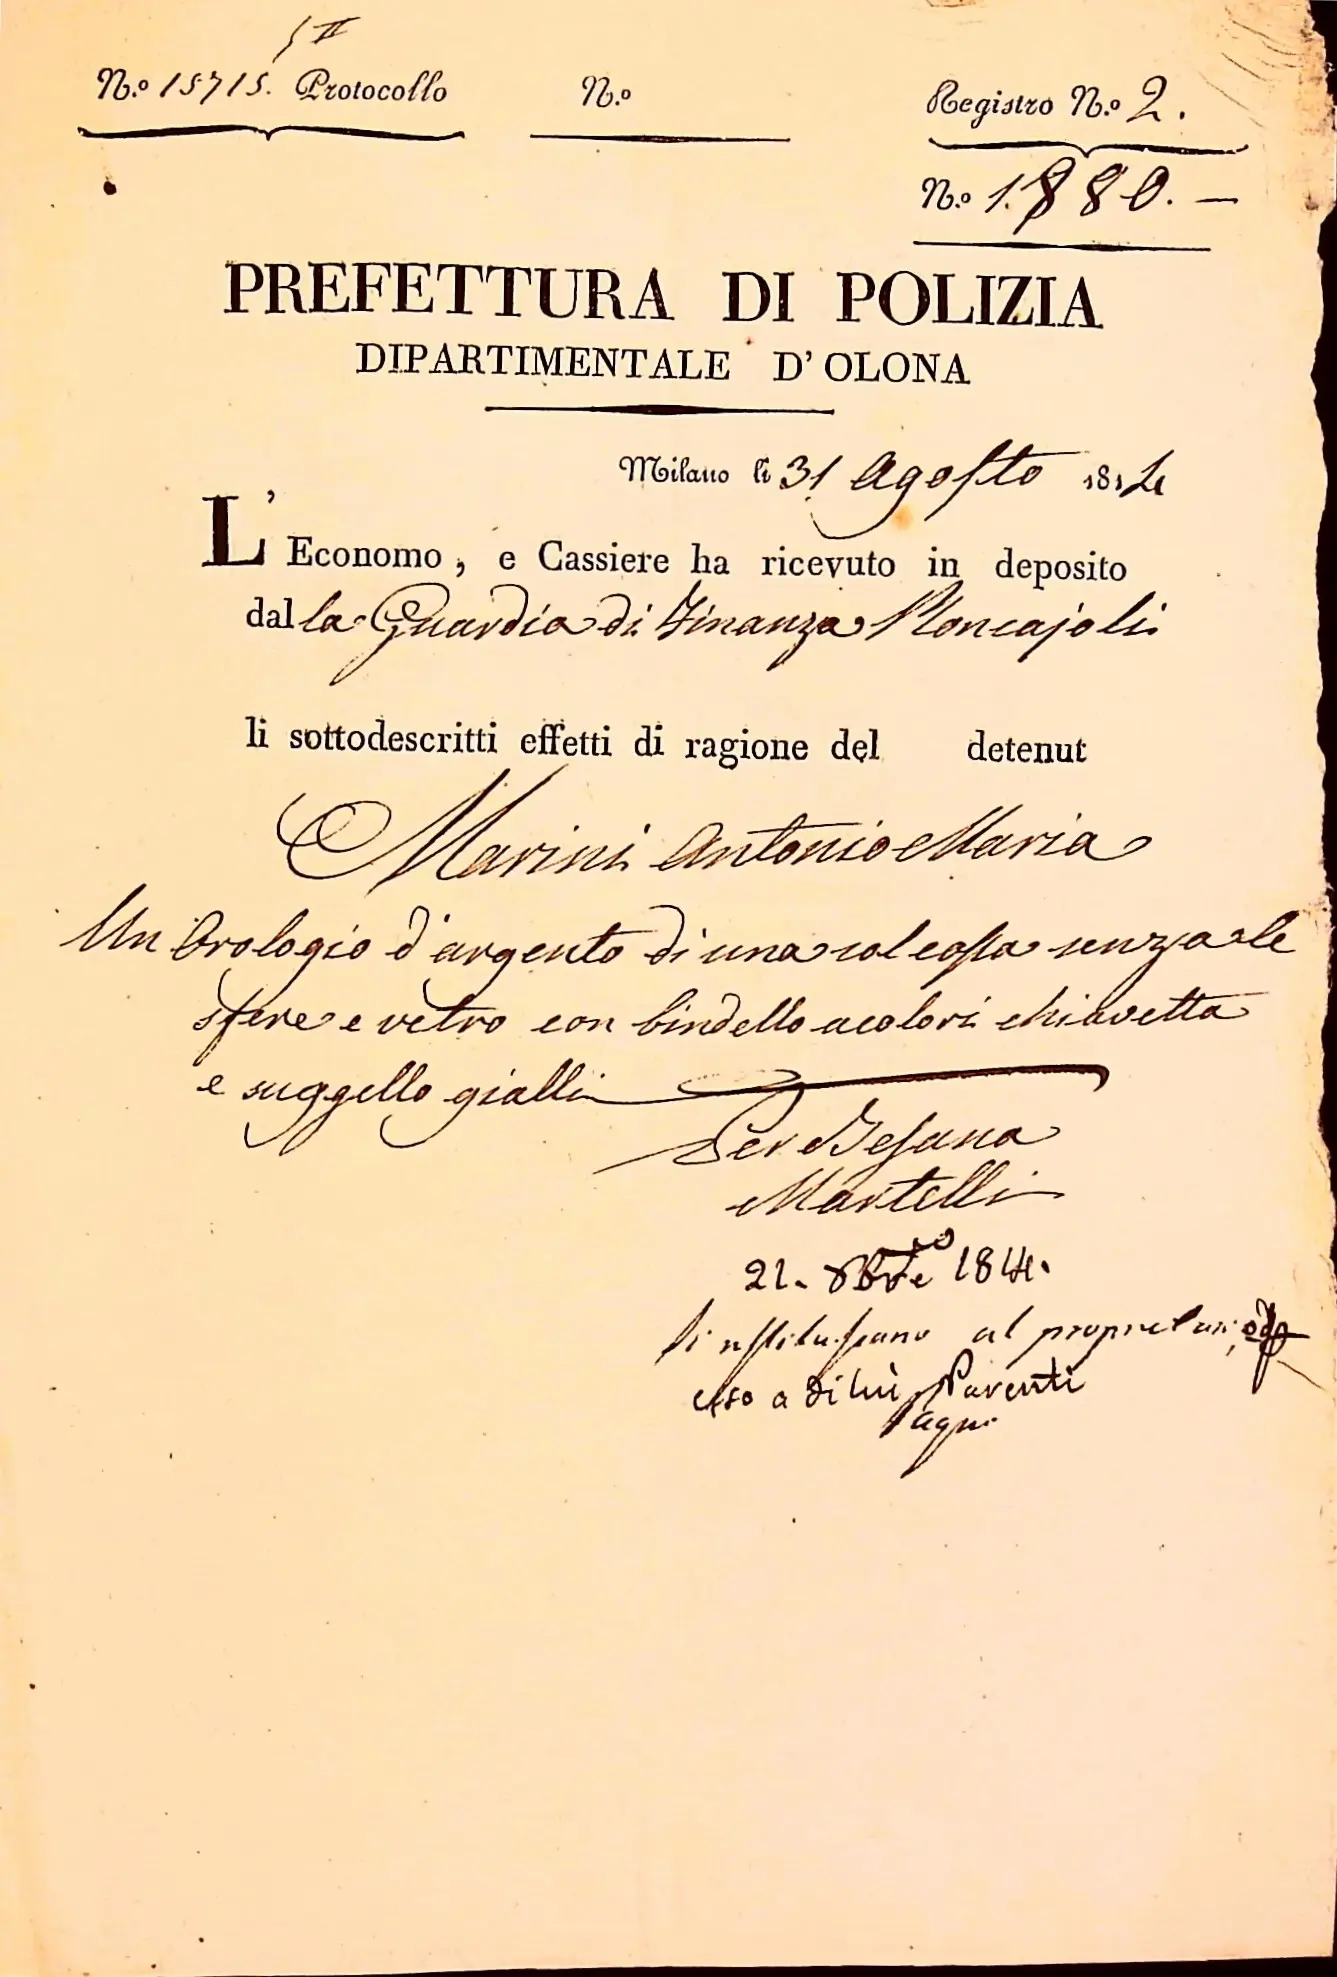 II
N.º 15715. Protocollo
N.º
Registro N.º 2.
N.º 1880. —
PREFETTURA DI POLIZIA
DIPARTIMENTALE D' OLONA
Milano li 31 Agosto 1814
L' Economo, e Cassiere ha ricevuto in deposito
dalla Guardia di Finanza Roncajoli
li sottodescritti effetti di ragione del detenut
Marini Antonio Maria
Un Orologio d'argento di una sol cassa senza le
sfere e vetro con bindello a colori chiavetta
e suggello gialli
Per Besana
Martelli
21. 8bre 1814.
Si restituiscano al proprietario
esso a di lui Parenti